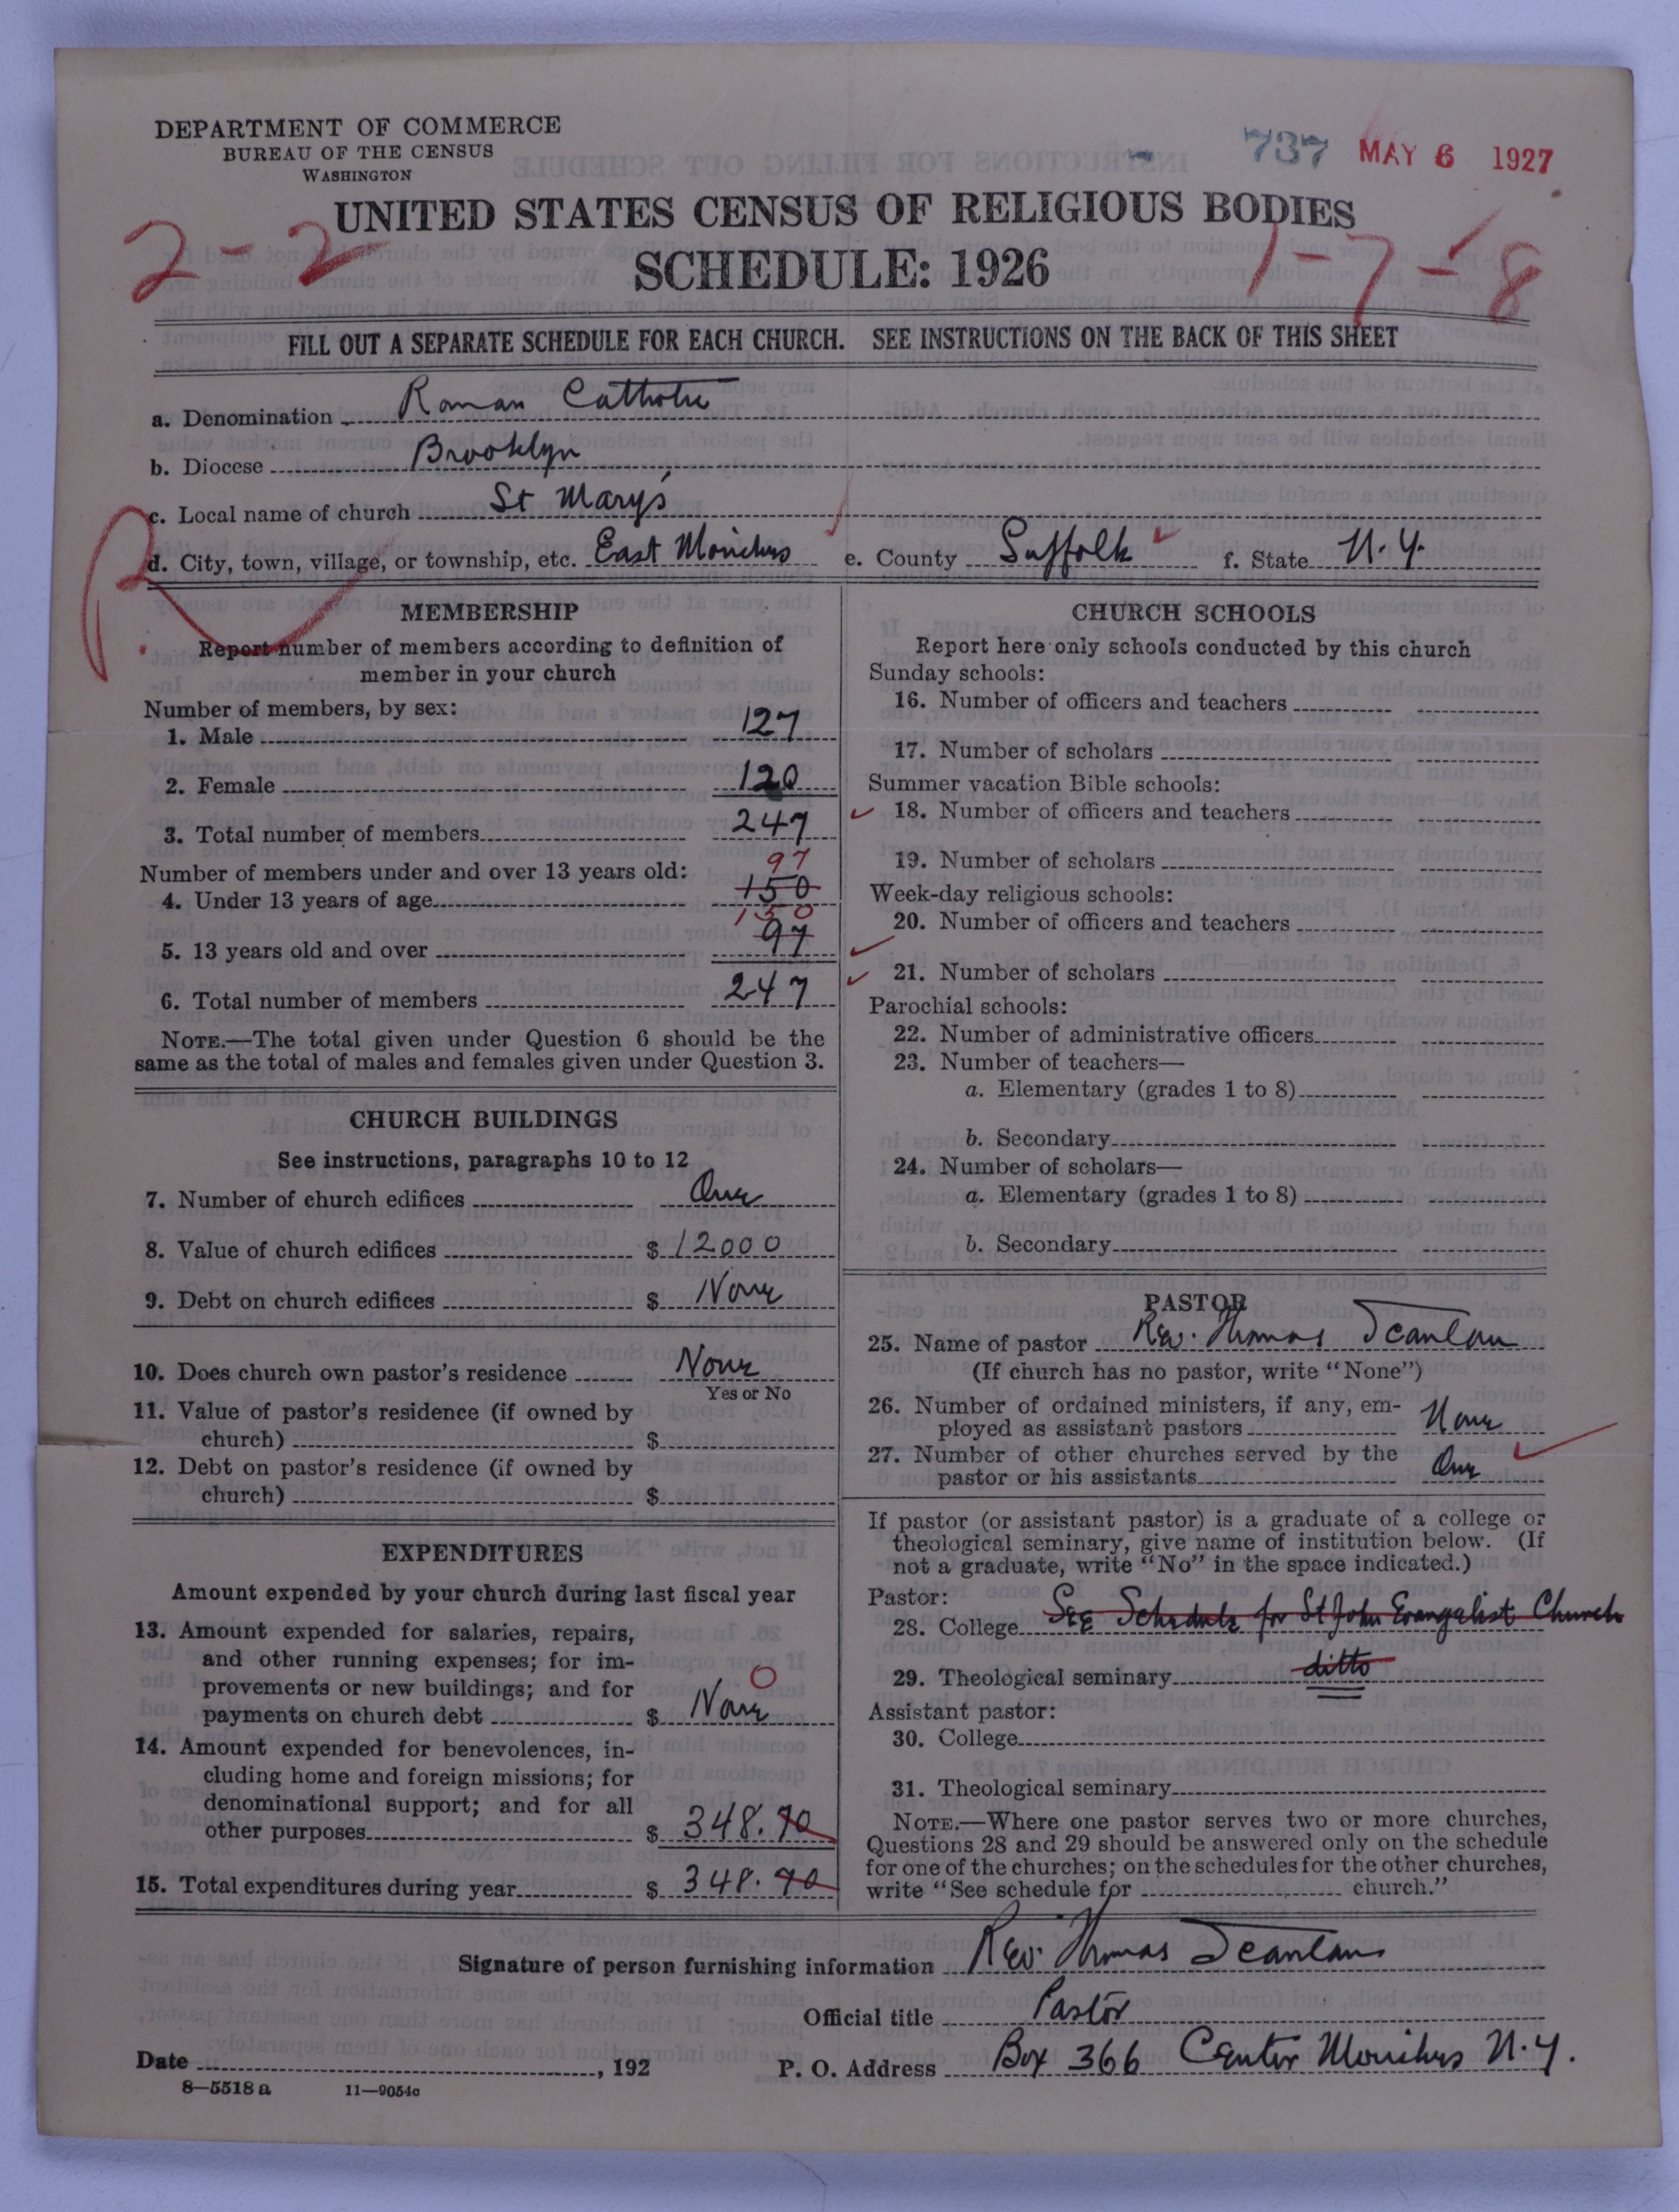 DEPARTMENT OF COMMERCE
BUREAU OF THE CENSUS
WASHINGTON
737 MAY 6 1927
UNITED STATES CENSUS OF RELIGIOUS BODIES
2-2 SCHEDULE: 1926 1-7-8
FILL OUT A SEPARATE SCHEDULE FOR EACH CHURCH. SEE INSTRUCTIONS ON THE BACK OF THIS SHEET
a. Denomination Roman Catholic
b. Diocese Brooklyn
c. Local name of church St Mary's
d. City, town, village, or township, etc. East Moriches e. County Suffolk f. State N.Y.
MEMBERSHIP
Report number of members according to definition of
member in your church
Number of members, by sex:
1. Male 127
2. Female 120
3. Total number of members 247
97
Number of members under and over 13 years old:
4. Under 13 years of age 150
150
5. 13 years old and over 97
6. Total number of members 247
NOTE.—The total given under Question 6 should be the
same as the total of males and females given under Question 3.
CHURCH BUILDINGS
See instructions, paragraphs 10 to 12
7. Number of church edifices One
8. Value of church edifices $ 12000
9. Debt on church edifices $ None
10. Does church own pastor's residence None
Yes or No
11. Value of pastor's residence (if owned by
church) $
12. Debt on pastor's residence (if owned by
church) $
EXPENDITURES
Amount expended by your church during last fiscal year
13. Amount expended for salaries, repairs,
and other running expenses; for im-
provements or new buildings; and for 0
payments on church debt $ None
14. Amount expended for benevolences, in-
cluding home and foreign missions; for
denominational support; and for all
other purposes $ 348.70
15. Total expenditures during year $ 348.70
CHURCH SCHOOLS
Report here only schools conducted by this church
Sunday schools:
16. Number of officers and teachers
17. Number of scholars
Summer vacation Bible schools:
18. Number of officers and teachers
19. Number of scholars
Week-day religious schools:
20. Number of officers and teachers
21. Number of scholars
Parochial schools:
22. Number of administrative officers
23. Number of teachers—
a. Elementary (grades 1 to 8)
b. Secondary
24. Number of scholars—
a. Elementary (grades 1 to 8)
b. Secondary
PASTOR
25. Name of pastor Rev. Thomas Scanlan
(If church has no pastor, write "None")
26. Number of ordained ministers, if any, em-
ployed as assistant pastors None
27. Number of other churches served by the
pastor or his assistants One
If pastor (or assistant pastor) is a graduate of a college or
theological seminary, give name of institution below. (If
not a graduate, write "No" in the space indicated.)
Pastor:
28. College See Schedule for St John Evangalist Church
29. Theological seminary ditto
Assistant pastor:
30. College
31. Theological seminary
NOTE.—Where one pastor serves two or more churches,
Questions 28 and 29 should be answered only on the schedule
for one of the churches; on the schedules for the other churches,
write "See schedule for church."
Signature of person furnishing information Rev. Thomas Scanlan
Official title Pastor
Date , 192 P. O. Address Box 366 Center Moriches N.Y.
8—5518a 11—9054c